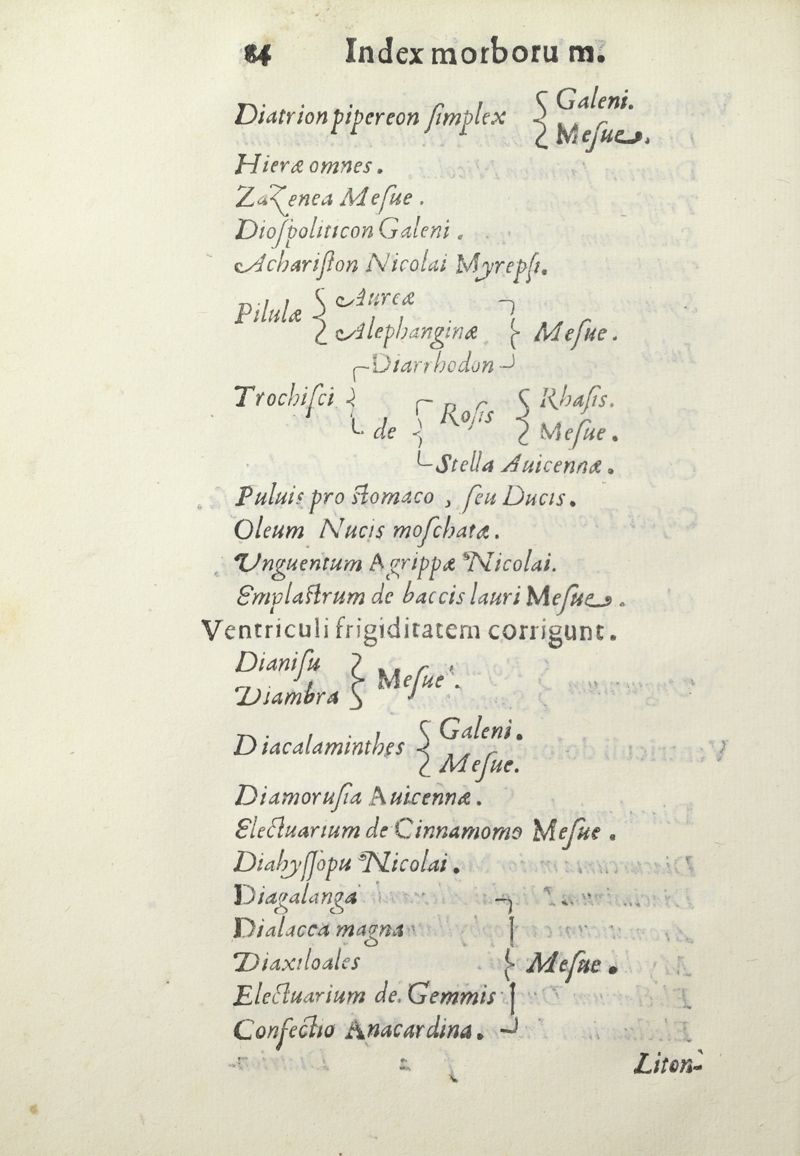 84 Index morborum.
Diatrion pipereon ſimplex { Galeni.
{ Meſue.
Hieræ omnes.
Zazenea Meſue.
Dioſpoliticon Galeni.
Achariſton Nicolai Myrepſi.
Pilulæ { Aureæ
{ Alephanginæ } Meſue.
Diarrhodon
Trochiſci { de { Roſis { Rhaſis.
{ Meſue.
Stella Auicennæ.
Puluis pro ſtomaco, ſeu Ducis.
Oleum Nucis moſchatæ.
Vnguentum Agrippæ Nicolai.
Emplaſtrum de baccis lauri Meſue.
Ventriculi frigiditatem corrigunt.
Dianiſu
Diambra } Meſue.
Diacalaminthes { Galeni.
{ Meſue.
Diamoruſia Auicennæ.
Electuarium de Cinnamomo Meſue.
Diahyſſopu Nicolai.
Diagalanga
Dialacca magna
Diaxiloales } Meſue.
Electuarium de Gemmis
Confectio Anacardina.
Liton-